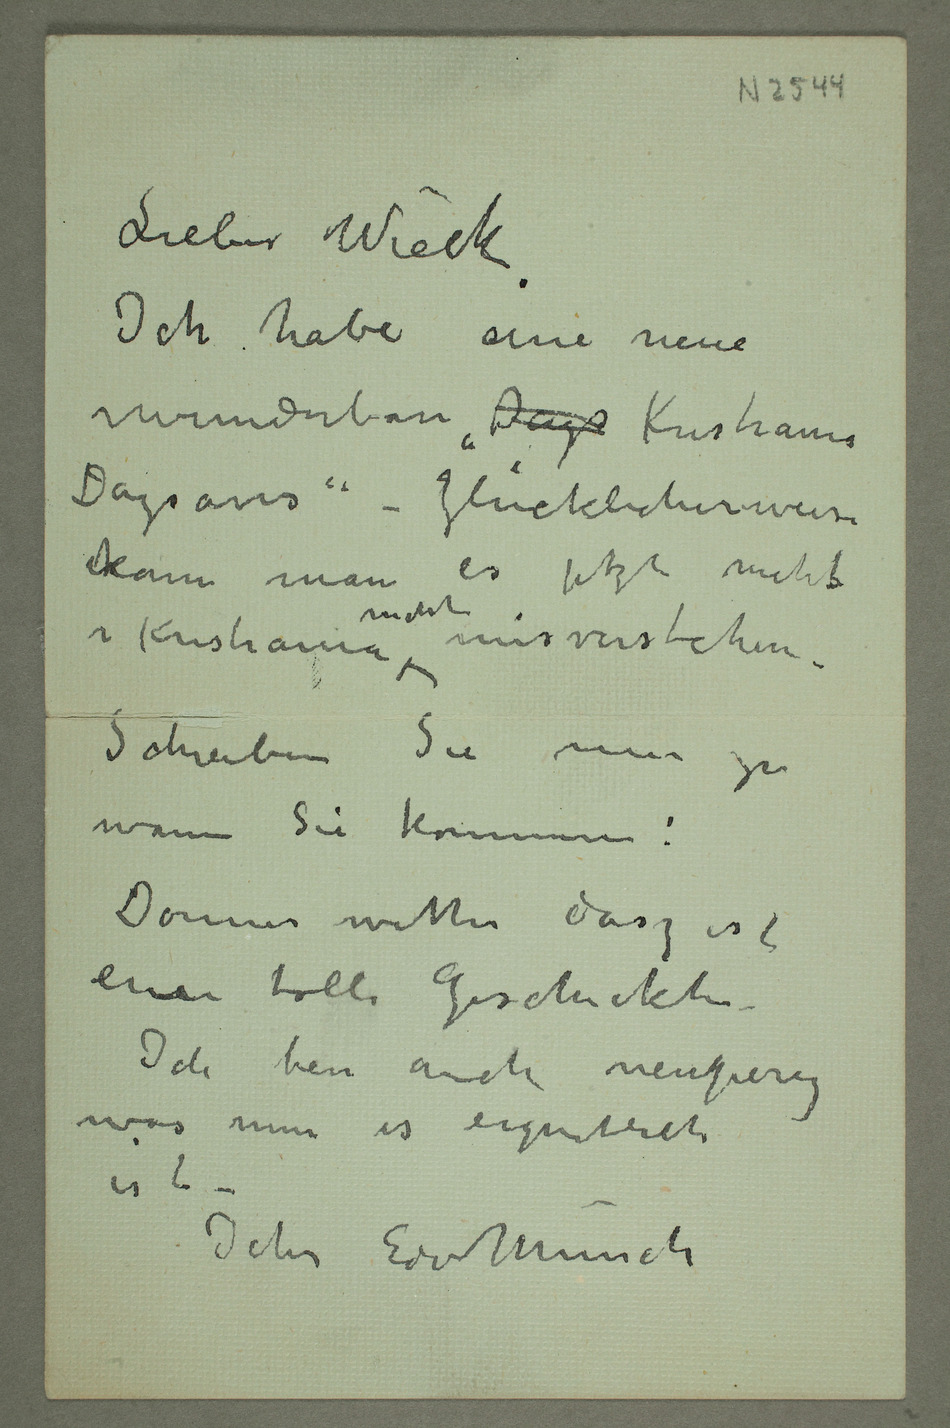 N 2544
Lieber Wieck.
Ich habe eine neue
wunderbare „Dags Kristiania
Dagsavis“ – Glücklicherweise
kann man es jetzt nicht
i Kristiania nicht misverstehen.
Schreiben Sie mir
wann Sie kommen!
Donner wetter dasz ist
eine tolle Geschickte –
Ich bin auch neugierig
was nun es
ist –
Ihr Edv Munch